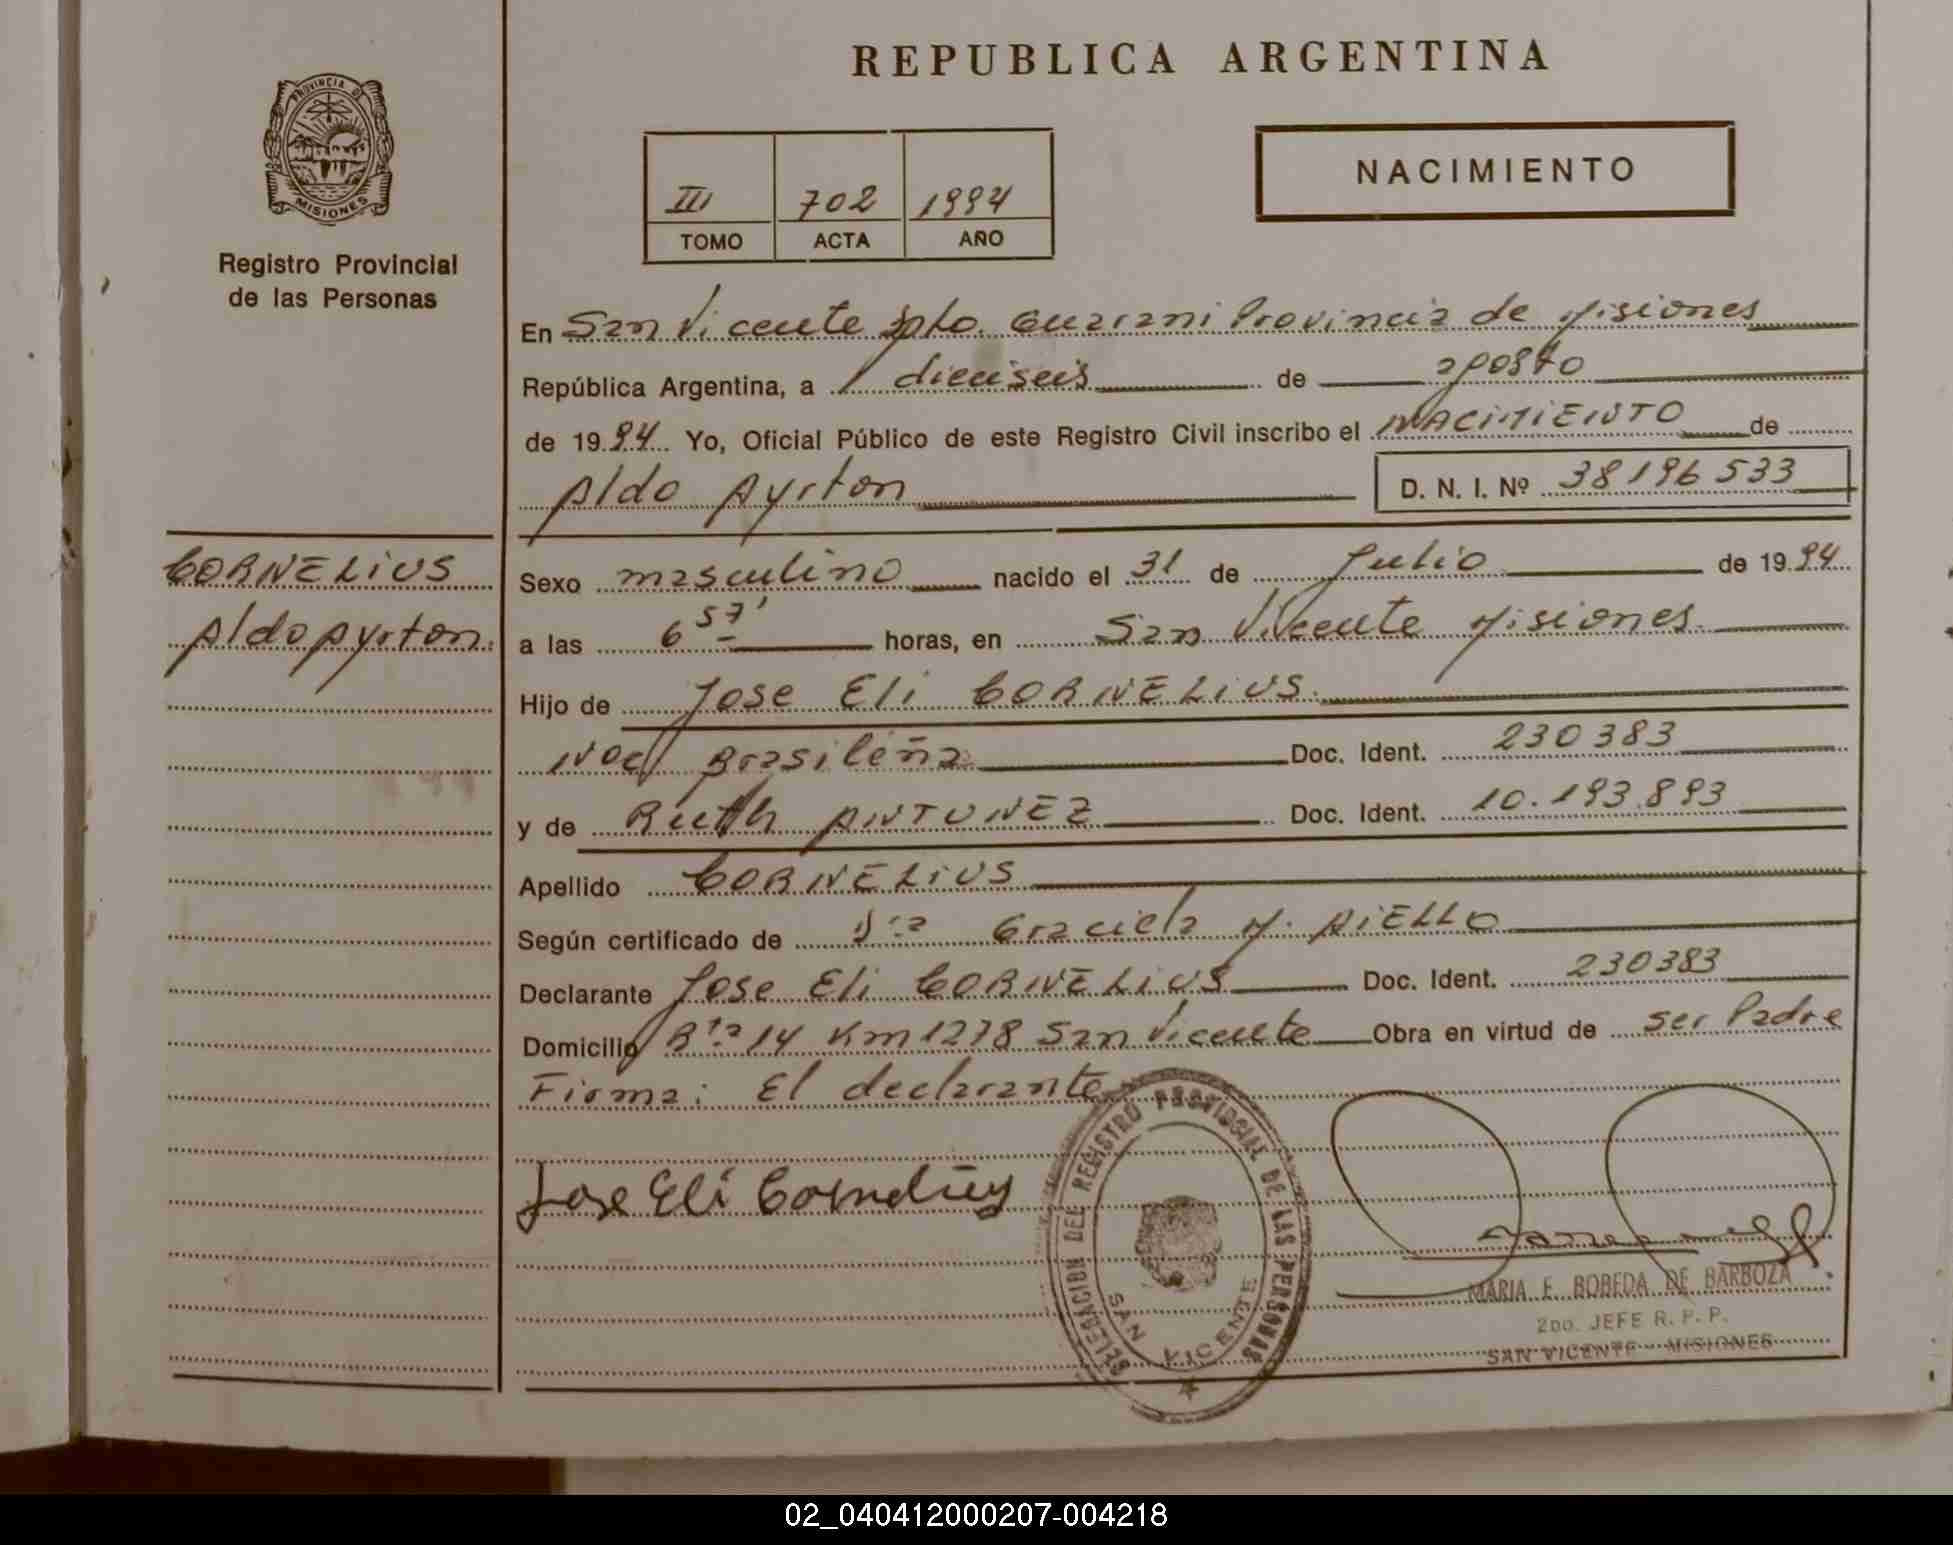 REPUBLICA ARGENTINA
PROVINCIA DE
MISIONES
Registro Provincial
de las Personas
III 702 1994
TOMO ACTA AÑO
NACIMIENTO
En San Vicente Dpto. Guarani Provincia de Misiones
República Argentina, a dieciseis de agosto
de 1994 Yo, Oficial Público de este Registro Civil inscribo el NACIMIENTO de
Aldo Ayrton D. N. I. Nº 38196533
CORNELIUS
Aldo Ayrton.
Sexo masculino nacido el 31 de Julio de 1994
a las 6 57' horas, en San Vicente Misiones.
Hijo de Jose Eli CORNELIUS.
Nac/ Brasileña Doc. Ident. 230383
y de Ruth ANTUNEZ Doc. Ident. 10.193.893
Apellido CORNELIUS
Según certificado de Dra Graciela M. AIELLO
Declarante Jose Eli CORNELIUS Doc. Ident. 230383
Domicilio Rta 14 Km 1278 San Vicente Obra en virtud de ser Padre
Firma: El declarante
Jose Eli Cornelius
DELEGACION DEL REGISTRO PROVINCIAL DE LAS PERSONAS
SAN VICENTE
MARIA E. BOBEDA DE BARBOZA
2DO. JEFE R. P. P.
SAN VICENTE - MISIONES
02_040412000207-004218